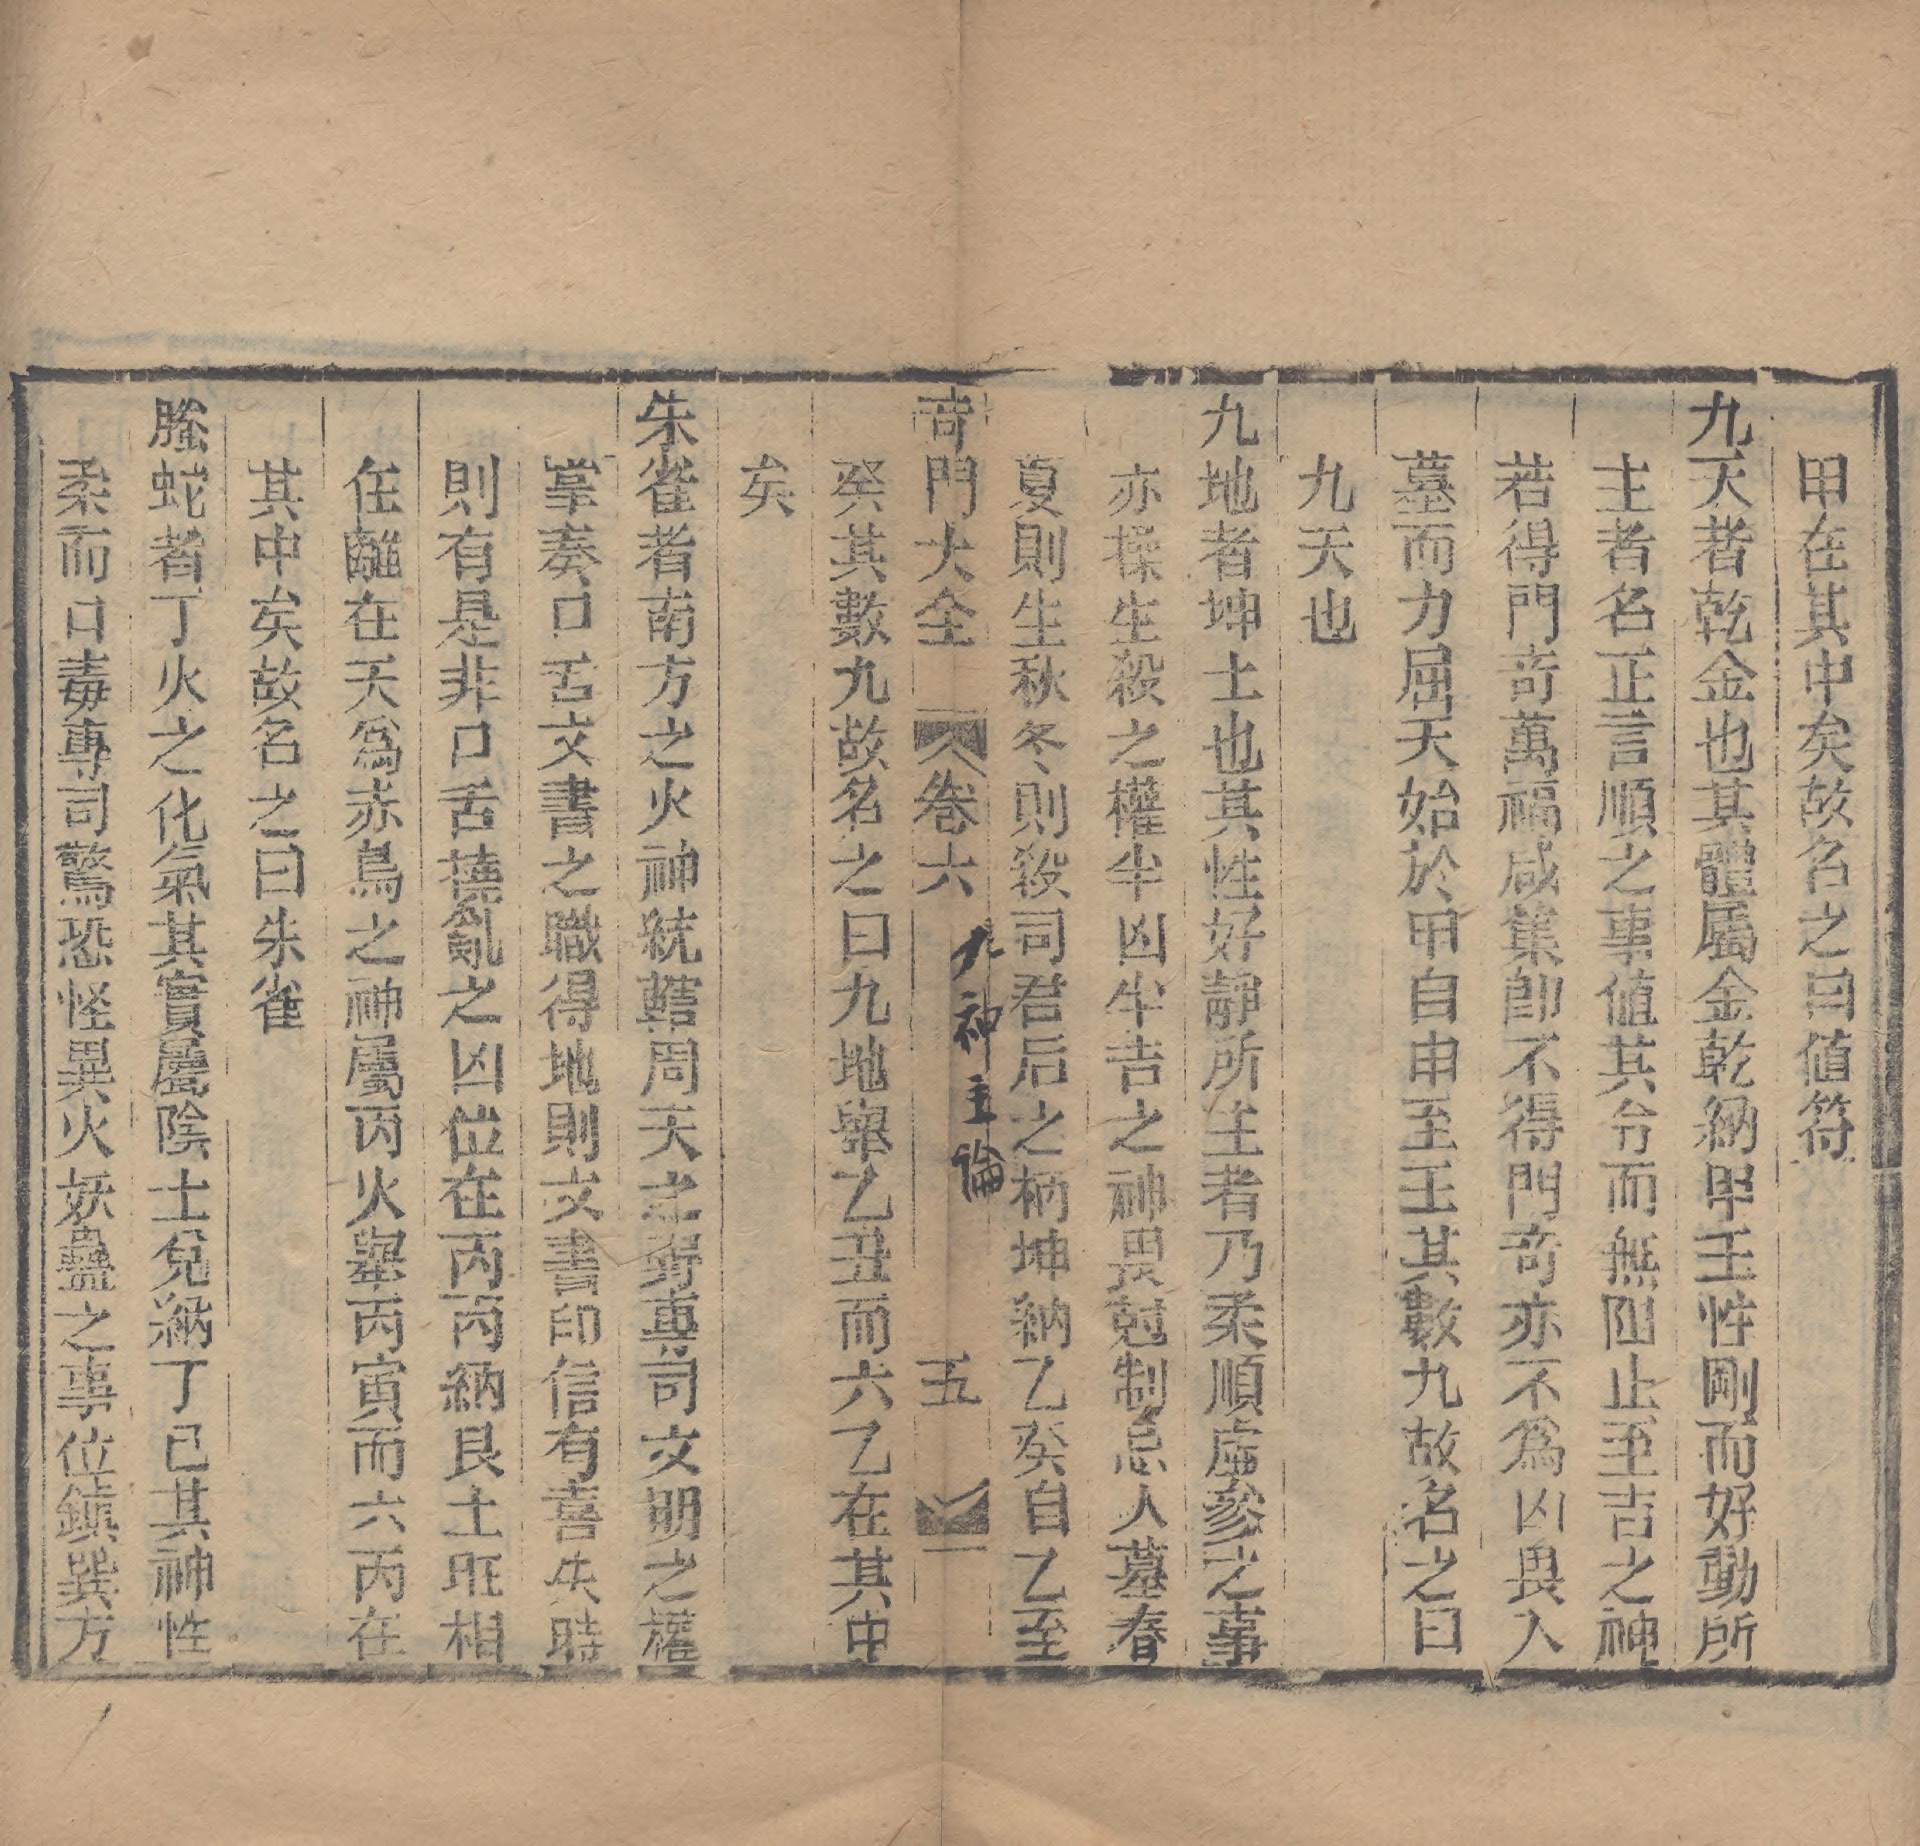 甲在其中矣故名之曰值符
九天者乾金也其體屬金乾納甲壬性剛而好動所
主者名正言順之事值其令而無阻止至吉之神
若得門奇萬福咸集卽不得門奇亦不爲凶畏入
墓而力屈天始於甲自甲至壬其數九故名之曰
九天也
九地者坤土也其性好靜所主者乃柔順虛參之事
亦操生殺之權半凶半吉之神畏尅制忌人墓春
夏則生秋冬則殺司君后之柄坤納乙癸自乙至
奇門大全 卷六 五
八神主論
癸其數九故名之曰九地舉乙丑而六乙在其中
矣
朱雀者南方之火神統轄周天之野專司文明之權
掌奏口舌文書之職得地則文書印信有喜失時
則有是非口舌撓亂之凶位在丙丙納艮土旺相
在離在天爲赤鳥之神屬丙火舉丙寅而六丙在
其中矣故名之曰朱雀
螣蛇者丁火之化氣其實屬陰土兌納丁己其神性
柔而口毒專司驚恐怪異火妖蠱之事位鎮巽方